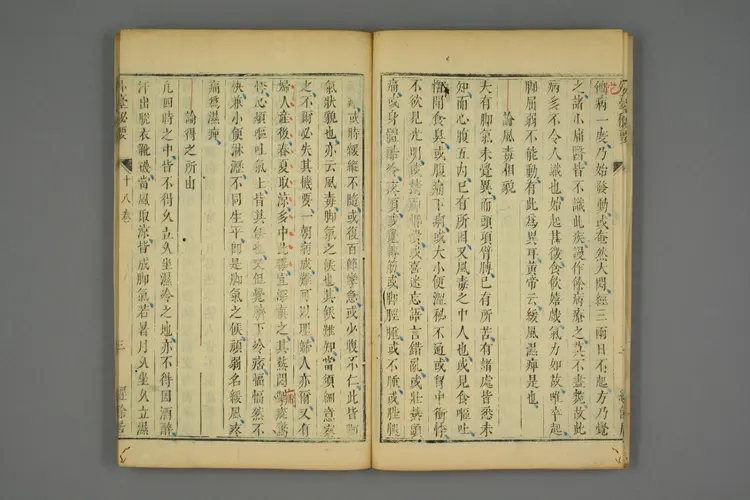 病一發乃始發動或奄然大悶經三兩日不起方乃覺
之諸小庸醫皆不識此疾謾作餘病療之莫不盡斃故此
病多不令人識也始起甚微食飲嬉戲氣力如故唯卒起
腳屈弱不能動有此為異耳黃帝云緩風濕痺是也
論風毒相貌
夫有腳氣未覺異而頭項臂膊已有所苦有諸處皆悉未
知而心腹五內已有所困又風毒之中人也或見食嘔吐
憎聞食臭或腹痛下痢或大小便澀秘不通或胸中衝悸
不欲見光明或精神昏憒或喜迷忘語言錯亂或壯熱頭
痛或身體酷冷疼煩或覺轉筋或腳脛腫或不腫或䏶腿
頑或時緩縱不隨或復百節攣急或少腹不仁此皆腳
氣狀貌也亦云風毒腳氣之候也其候難知當須細意察
之不爾必失其機要一朝病成難可以理婦人亦爾又有
婦人產後春夏取涼多中此毒宜深慎之其熱悶掣瘲驚
悸心煩嘔吐氣上皆其候也又但覺臍下冷痞愊愊然不
快兼小便淋瀝不同生平即是腳氣之候頑弱名緩風疼
痛為濕痺
論得之所由
凡四時之中皆不得久立久坐濕冷之地亦不得因酒醉
汗出脫衣靴襪當風取涼皆成腳氣若暑月久坐久立濕
外臺秘要
十八卷
三
經餘居